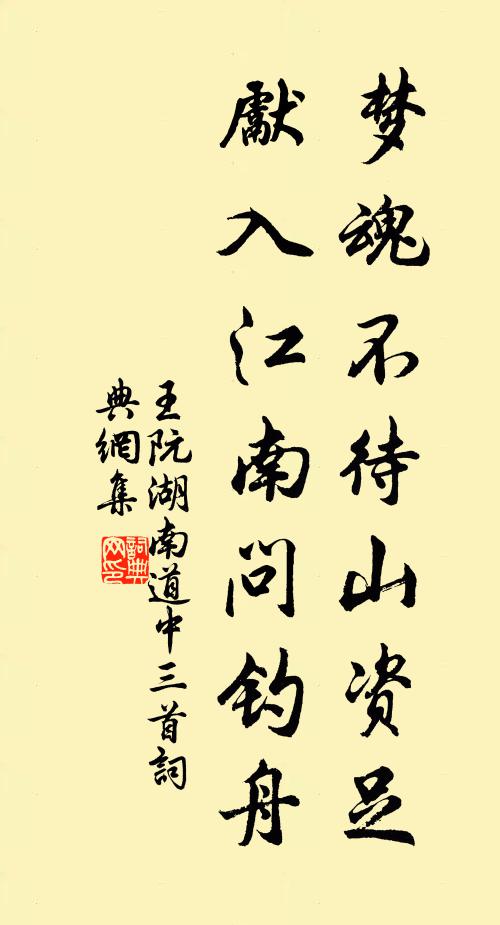 梦魂不待山资足
獻入江南问钓舟
王阮湖南道中三首詞
典網集
詞典
网印